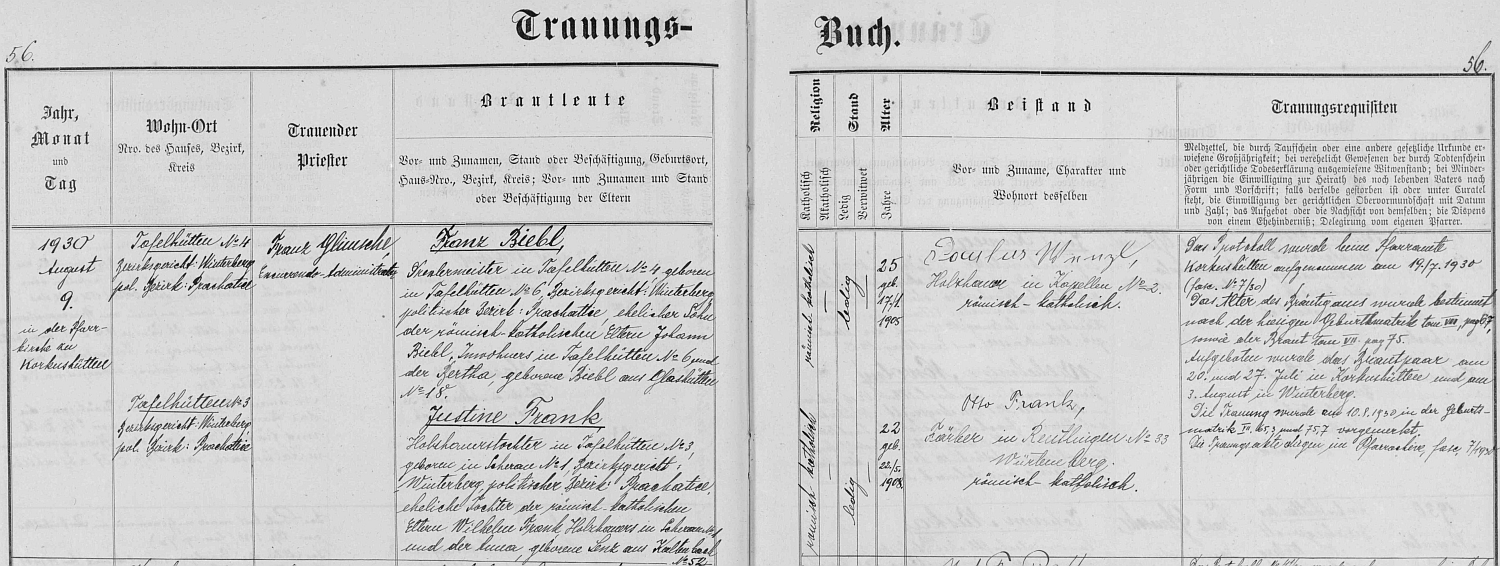 Trauungs-
Buch.
56.
56.
Jahr,
Monat
und
Tag
Wohn-Ort
Nro. des Hauses, Bezirk,
Kreis
Trauender
Priester
Brautleute
Vor- und Zunamen, Stand oder Beschäftigung, Geburtsort,
Haus-Nro., Bezirk, Kreis; Vor- und Zunamen und Stand
oder Beschäftigung der Eltern
Religion
Katholisch
Akatholisch
Stand
Ledig
Verwitwet
Alter
Jahre
Beistand
Vor- und Zuname, Charakter und
Wohnort desselben
Trauungsrequisiten
Meldzettel, die durch Taufschein oder eine andere gesetzliche Urkunde er-
wiesene Großjährigkeit; bei verehelicht Gewesenen der durch Todtenschein
oder gerichtliche Todeserklärung ausgewiesene Witwenstand; bei Minder-
jährigen die Einwilligung zur Heirath des noch lebenden Vaters nach
Form und Vorschrift; falls derselbe gestorben ist oder unter Curatel
steht, die Einwilligung der gerichtlichen Obervormundschaft mit Datum
und Zahl; das Aufgebot oder die Nachsicht von demselben; die Dispens
von einem Ehehinderniß; Delegirung vom eigenen Pfarrer.
1930
August
9.
in der Pfarr-
kirche zu
Korkushütten
Tafelhütten No 4
Bezirksgericht: Winterberg
pol. Bezirk: Prachatice
Franz
Franz Biebl,
in Tafelhütten No 4, geboren
in Tafelhütten No 6, Bezirksgericht: Winterberg,
politischer Bezirk: Prachatice, ehelicher Sohn
der römisch-katholischen Eltern Johann
Biebl, Inwohners in Tafelhütten No 6 und
der Bertha geborene Biebl aus Glashütten
No 18.
römisch-katholisch
ledig
25
geb.
1905
Paulus Wenzl,
Holzhauer in Kapellen No 2.
römisch-katholisch.
Das Protokoll wurde beim Pfarramte
Korkushütten aufgenommen am 19./7. 1930
(fasc. No 7/30)
Das Alter des Bräutigams wurde bestimmt
nach der hiesigen Geburtsmatrik tom VIII, pag 67,
sowie der Braut tom VII. pag 75.
Aufgeboten wurde das Brautpaar am
20. und 27. Juli in Korkushütten und am
3. August in Winterberg.
Die Trauung wurde am 10.8.1930 in der Geburts-
matrik vorgemerkt.
Die Trauungsakte liegen in Pfarrarchive, fasc.
Tafelhütten No 3
Bezirksgericht: Winterberg
pol. Bezirk: Prachatice
Justine Frank
Holzhauerstochter in Tafelhütten No 3,
geboren in Scherau No 1, Bezirksgericht:
Winterberg, politischer Bezirk: Prachatice,
eheliche Tochter der römisch-katholischen
Eltern Wilhelm Frank Holzhauers in Scherau No 1
und der Anna, geborene Lenz aus Kaltenbach
No 52
römisch-katholisch
ledig
22
geb.
22./5.
1908.
Otto Frank,
Färber in Reutlingen No 33
Würtemberg.
römisch-katholisch.